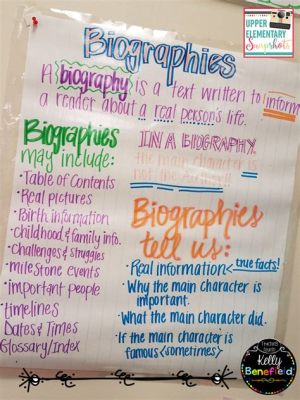 UPPER
ELEMENTARY
Snapshots
Biographies
A biography is a text written to inform
a reader about a real person's life.
Biographies
may include:
• Table of Contents
• Real pictures
• Birth information
• Childhood & family info.
• Challenges & struggles
• milestone events
• important people
• timelines
• Dates & Times
• Glossary/Index
IN A BIOGRAPHY,
the main character is
not the Author!!
Biographies
tell us:
• Real information < true facts!
• Why the main character is
important.
• What the main character did.
• If the main character is
famous <sometimes>
Kelly
Benefield